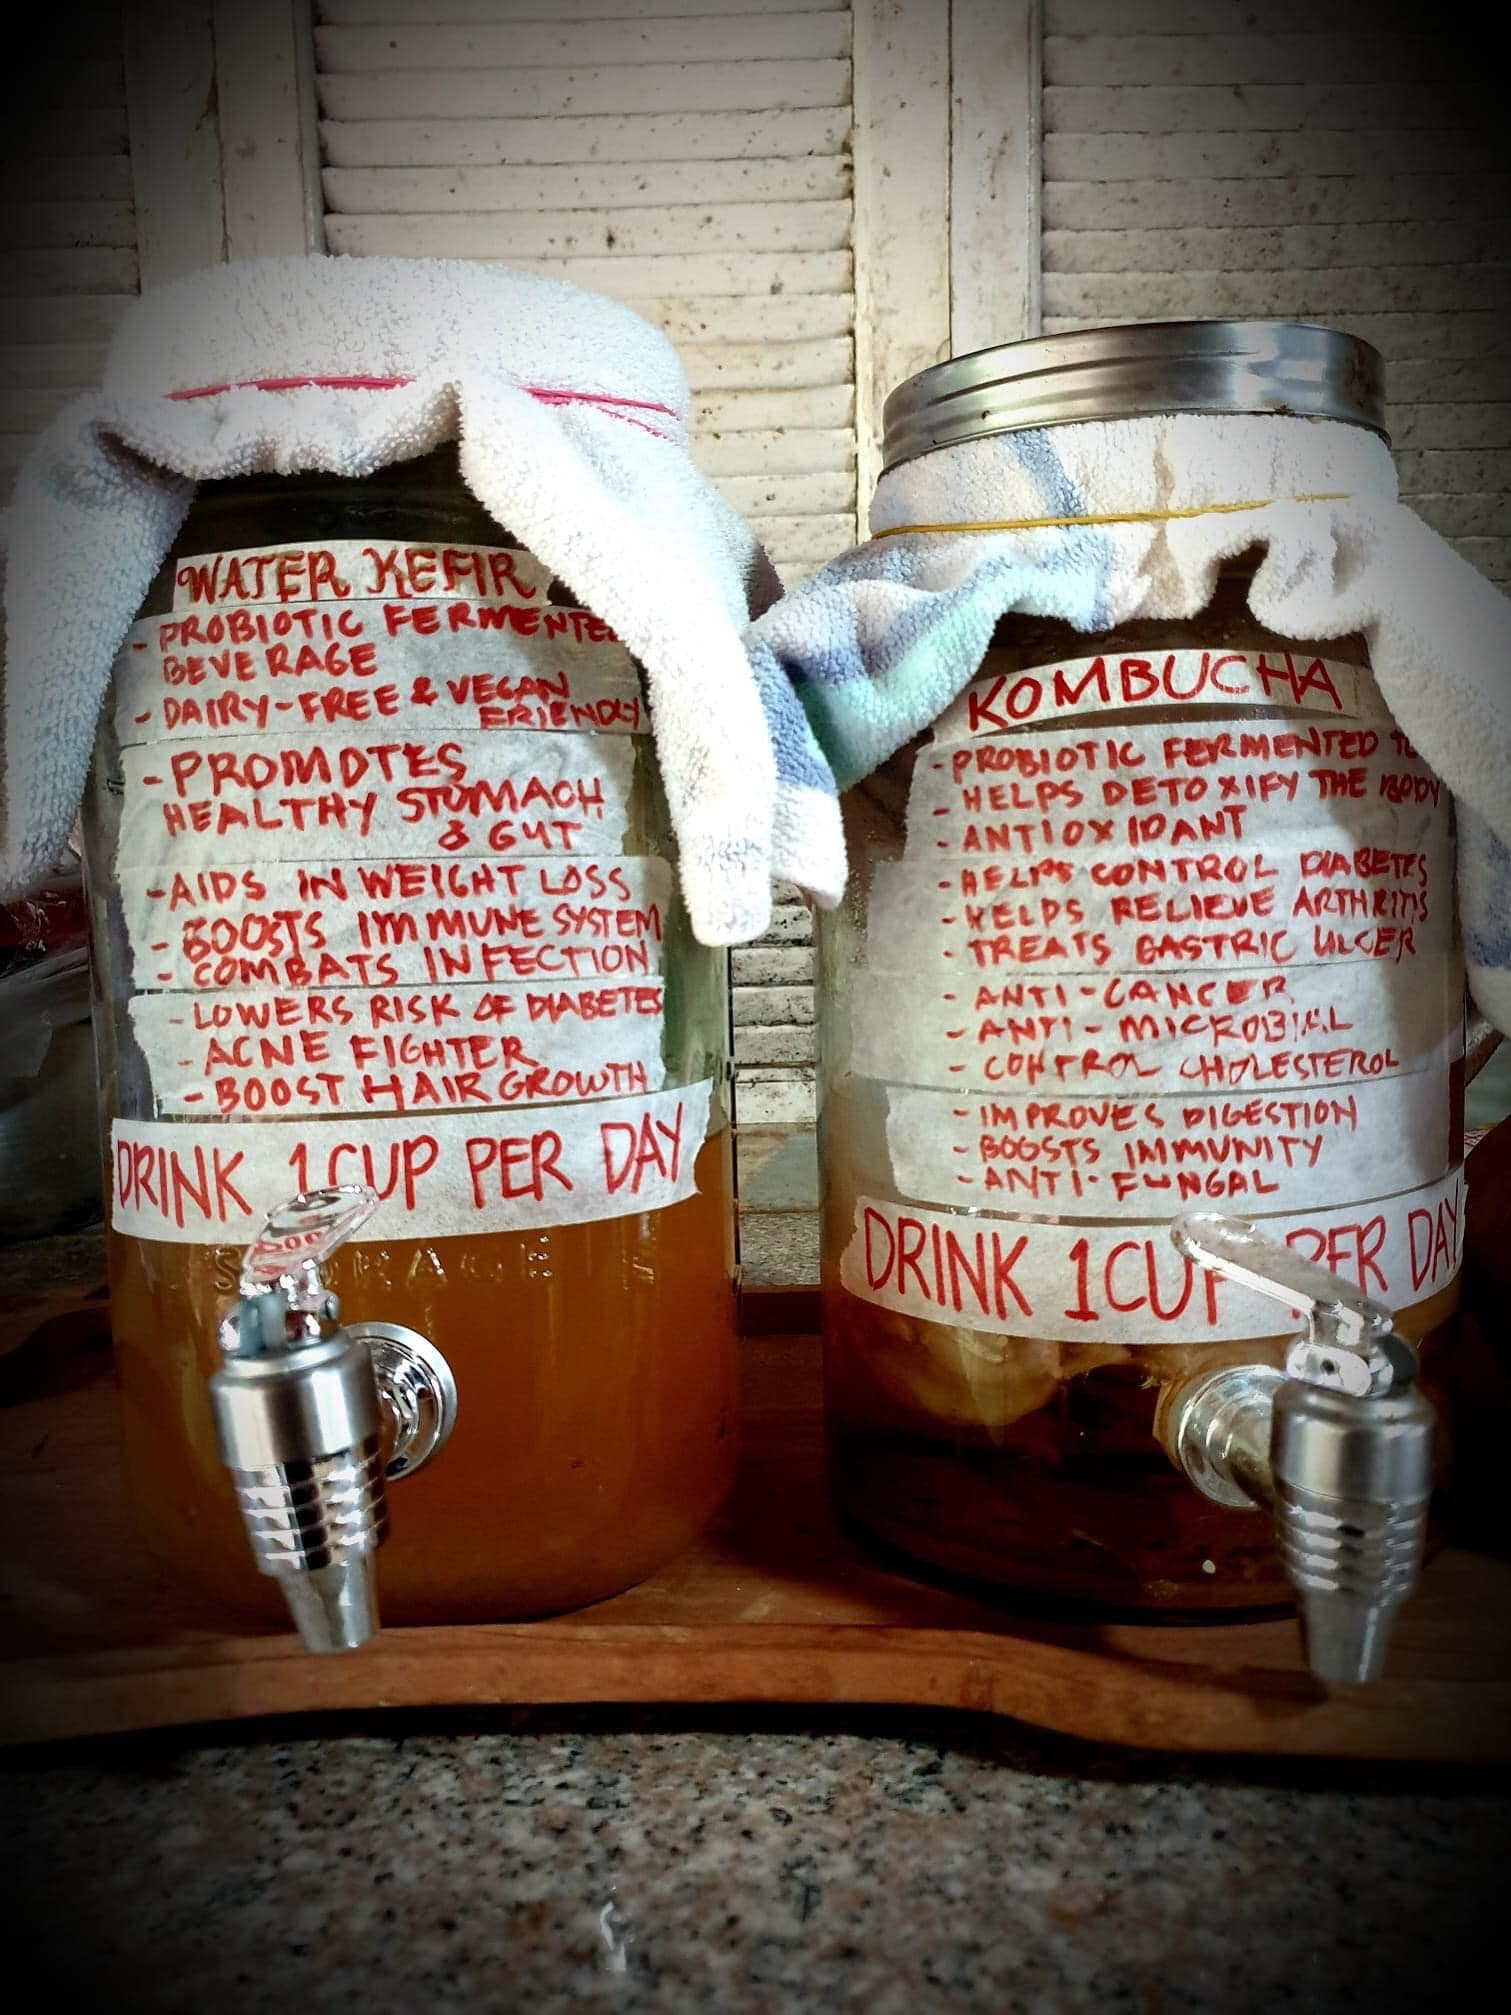 WATER KEFIR
- PROBIOTIC FERMENTED
BEVERAGE
- DAIRY-FREE & VEGAN
FRIENDLY
- PROMOTES
HEALTHY STOMACH
& GUT
- AIDS IN WEIGHT LOSS
- BOOSTS IMMUNE SYSTEM
- COMBATS INFECTION
- LOWERS RISK OF DIABETES
- ACNE FIGHTER
- BOOST HAIR GROWTH
DRINK 1 CUP PER DAY
KOMBUCHA
- PROBIOTIC FERMENTED
- HELPS DETOXIFY THE BODY
- ANTIOXIDANT
- HELPS CONTROL DIABETES
- HELPS RELIEVE ARTHRITIS
- TREATS GASTRIC ULCER
- ANTI-CANCER
- ANTI-MICROBIAL
- CONTROL CHOLESTEROL
- IMPROVES DIGESTION
- BOOSTS IMMUNITY
- ANTI-FUNGAL
DRINK 1 CUP PER DAY